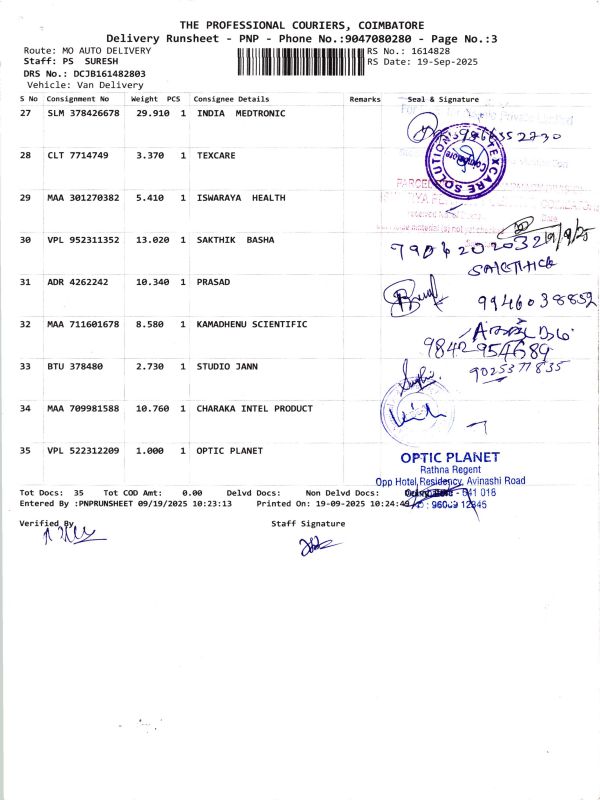 THE PROFESSIONAL COURIERS, COIMBATORE
Delivery Runsheet - PNP - Phone No.:9047080280 - Page No.:3
Route: MO AUTO DELIVERY RS No.: 1614828
Staff: PS SURESH RS Date: 19-Sep-2025
DRS No.: DCJB161482803
Vehicle: Van Delivery
S No Consignment No Weight PCS Consignee Details Remarks Seal & Signature
27 SLM 378426678 29.910 1 INDIA MEDTRONIC
Private Limited
28 CLT 7714749 3.370 1 TEXCARE
TEXCARE SOLUTIONS
Coimbatore
29 MAA 301270382 5.410 1 ISWARAYA HEALTH
30 VPL 952311352 13.020 1 SAKTHIK BASHA
19/9/25
31 ADR 4262242 10.340 1 PRASAD
9946038852
32 MAA 711601678 8.580 1 KAMADHENU SCIENTIFIC
9842954689
33 BTU 378480 2.730 1 STUDIO JANN
9025377835
34 MAA 709981588 10.760 1 CHARAKA INTEL PRODUCT
35 VPL 522312209 1.000 1 OPTIC PLANET
OPTIC PLANET
Rathna Regent
Opp Hotel Residency, Avinashi Road
641 018
Tot Docs: 35 Tot COD Amt: 0.00 Delvd Docs: Non Delvd Docs:
Entered By :PNPRUNSHEET 09/19/2025 10:23:13 Printed On: 19-09-2025 10:24:49
Verified By Staff Signature